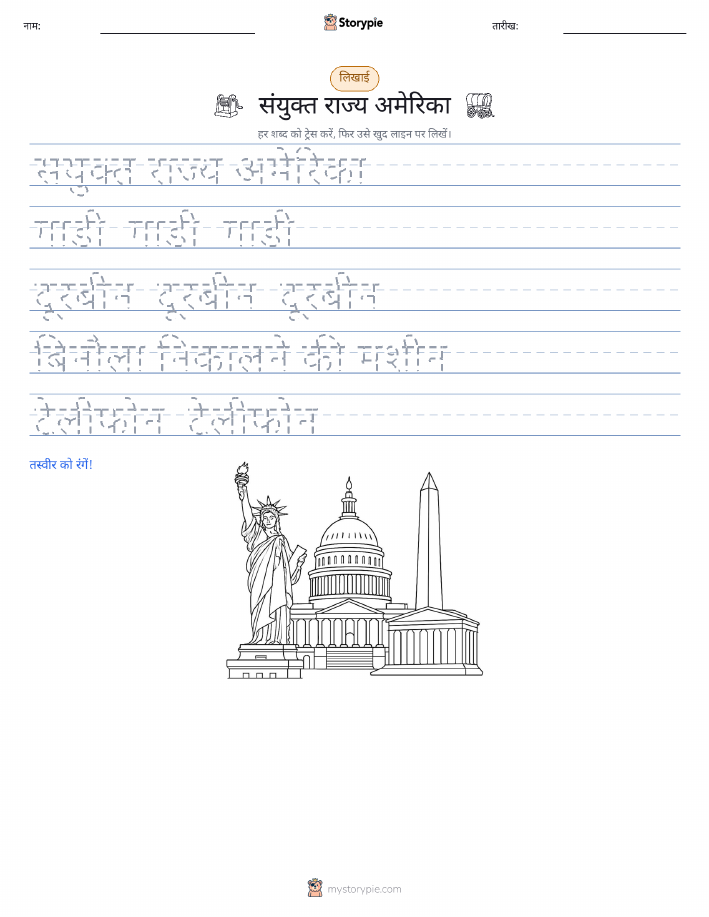 नाम:
Storypie
तारीख:
लिखाई
संयुक्त राज्य अमेरिका
हर शब्द को ट्रेस करें, फिर उसे खुद लाइन पर लिखें।
संयुक्त राज्य अमेरिका
गाड़ी गाड़ी गाड़ी
दूरबीन दूरबीन दूरबीन
बिनौला निकालने की मशीन
टेलीफोन टेलीफोन
तस्वीर को रंगें!
mystorypie.com